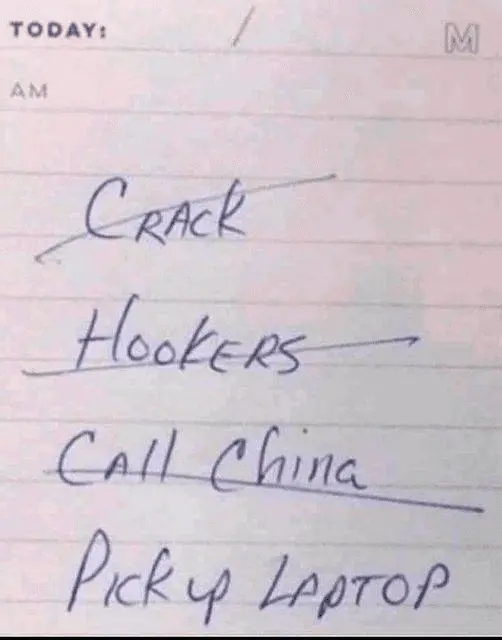 TODAY: / M
AM
CRACK
HOOKERS
CAll China
PICK up LAPTOP